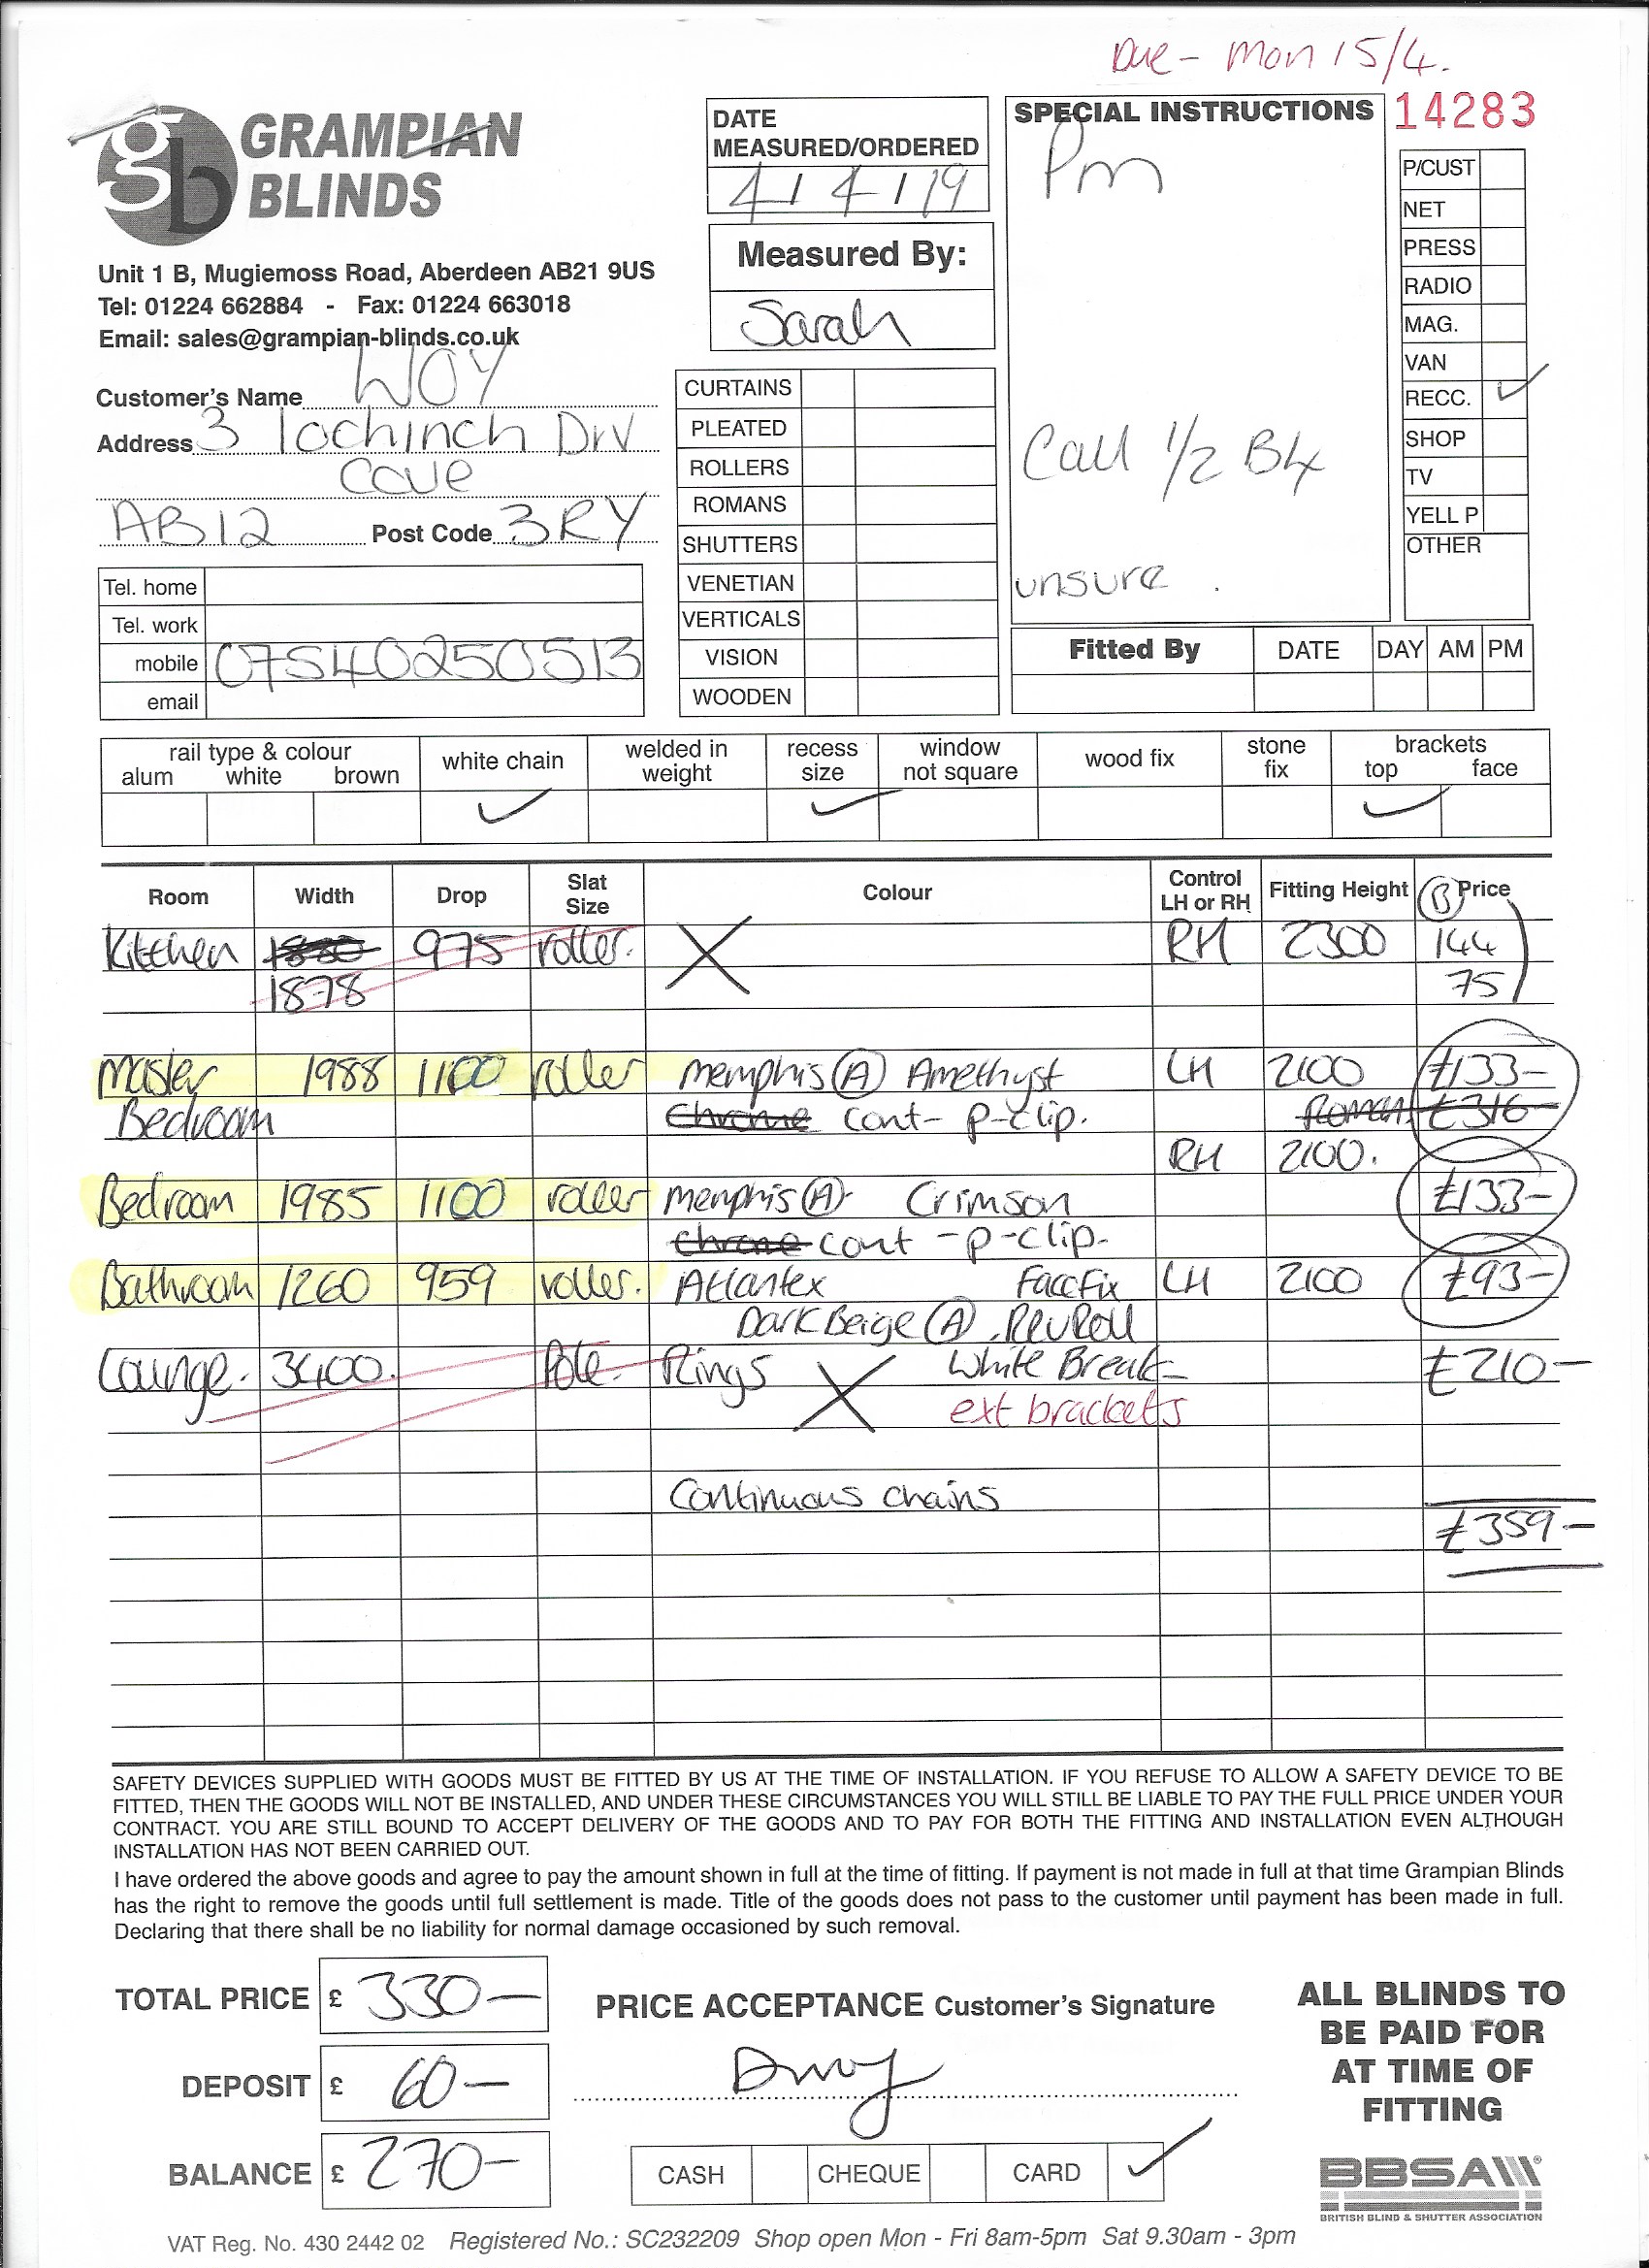 Due - Mon 15/4.
14283
gb GRAMPIAN
BLINDS
Unit 1 B, Mugiemoss Road, Aberdeen AB21 9US
Tel: 01224 662884 - Fax: 01224 663018
Email: sales@grampian-blinds.co.uk
Customer's Name WOY
Address 3 lochinch Drv
Cove
AB12 Post Code 3RY
Tel. home
Tel. work
mobile 07540250513
email
DATE
MEASURED/ORDERED
4/4/19
Measured By:
Sarah
CURTAINS
PLEATED
ROLLERS
ROMANS
SHUTTERS
VENETIAN
VERTICALS
VISION
WOODEN
SPECIAL INSTRUCTIONS
Pm
Call 1/2 B4
unsure.
P/CUST
NET
PRESS
RADIO
MAG.
VAN
RECC. ✓
SHOP
TV
YELL P
OTHER
Fitted By DATE DAY AM PM
rail type & colour white chain welded in recess window wood fix stone brackets
alum white brown weight size not square fix top face
✓ ✓ ✓
Room Width Drop Slat Size Colour Control LH or RH Fitting Height (B) Price
Kitchen 1880 975 roller. X RH 2300 144
1878 75
Master 1988 1100 roller memphis (A) Amethyst LH 2100 £133-
Bedroom Chrome cont- p-clip. Roman £316-
RH 2100.
Bedroom 1985 1100 roller memphis (A)- Crimson £133-
chrome cont -p-clip-
Bathroom 1260 959 roller. Atlantex Face Fix LH 2100 £93-
Dark Beige (A). Rev Roll
Lounge. 3400. Pole. Rings X White Break- £210-
ext brackets
Continuous chains
£359-
SAFETY DEVICES SUPPLIED WITH GOODS MUST BE FITTED BY US AT THE TIME OF INSTALLATION. IF YOU REFUSE TO ALLOW A SAFETY DEVICE TO BE
FITTED, THEN THE GOODS WILL NOT BE INSTALLED, AND UNDER THESE CIRCUMSTANCES YOU WILL STILL BE LIABLE TO PAY THE FULL PRICE UNDER YOUR
CONTRACT. YOU ARE STILL BOUND TO ACCEPT DELIVERY OF THE GOODS AND TO PAY FOR BOTH THE FITTING AND INSTALLATION EVEN ALTHOUGH
INSTALLATION HAS NOT BEEN CARRIED OUT.
I have ordered the above goods and agree to pay the amount shown in full at the time of fitting. If payment is not made in full at that time Grampian Blinds
has the right to remove the goods until full settlement is made. Title of the goods does not pass to the customer until payment has been made in full.
Declaring that there shall be no liability for normal damage occasioned by such removal.
TOTAL PRICE £ 330-
DEPOSIT £ 60-
BALANCE £ 270-
PRICE ACCEPTANCE Customer's Signature
Dwoy
CASH CHEQUE CARD ✓
ALL BLINDS TO
BE PAID FOR
AT TIME OF
FITTING
BBSA
BRITISH BLIND & SHUTTER ASSOCIATION
VAT Reg. No. 430 2442 02 Registered No.: SC232209 Shop open Mon - Fri 8am-5pm Sat 9.30am - 3pm